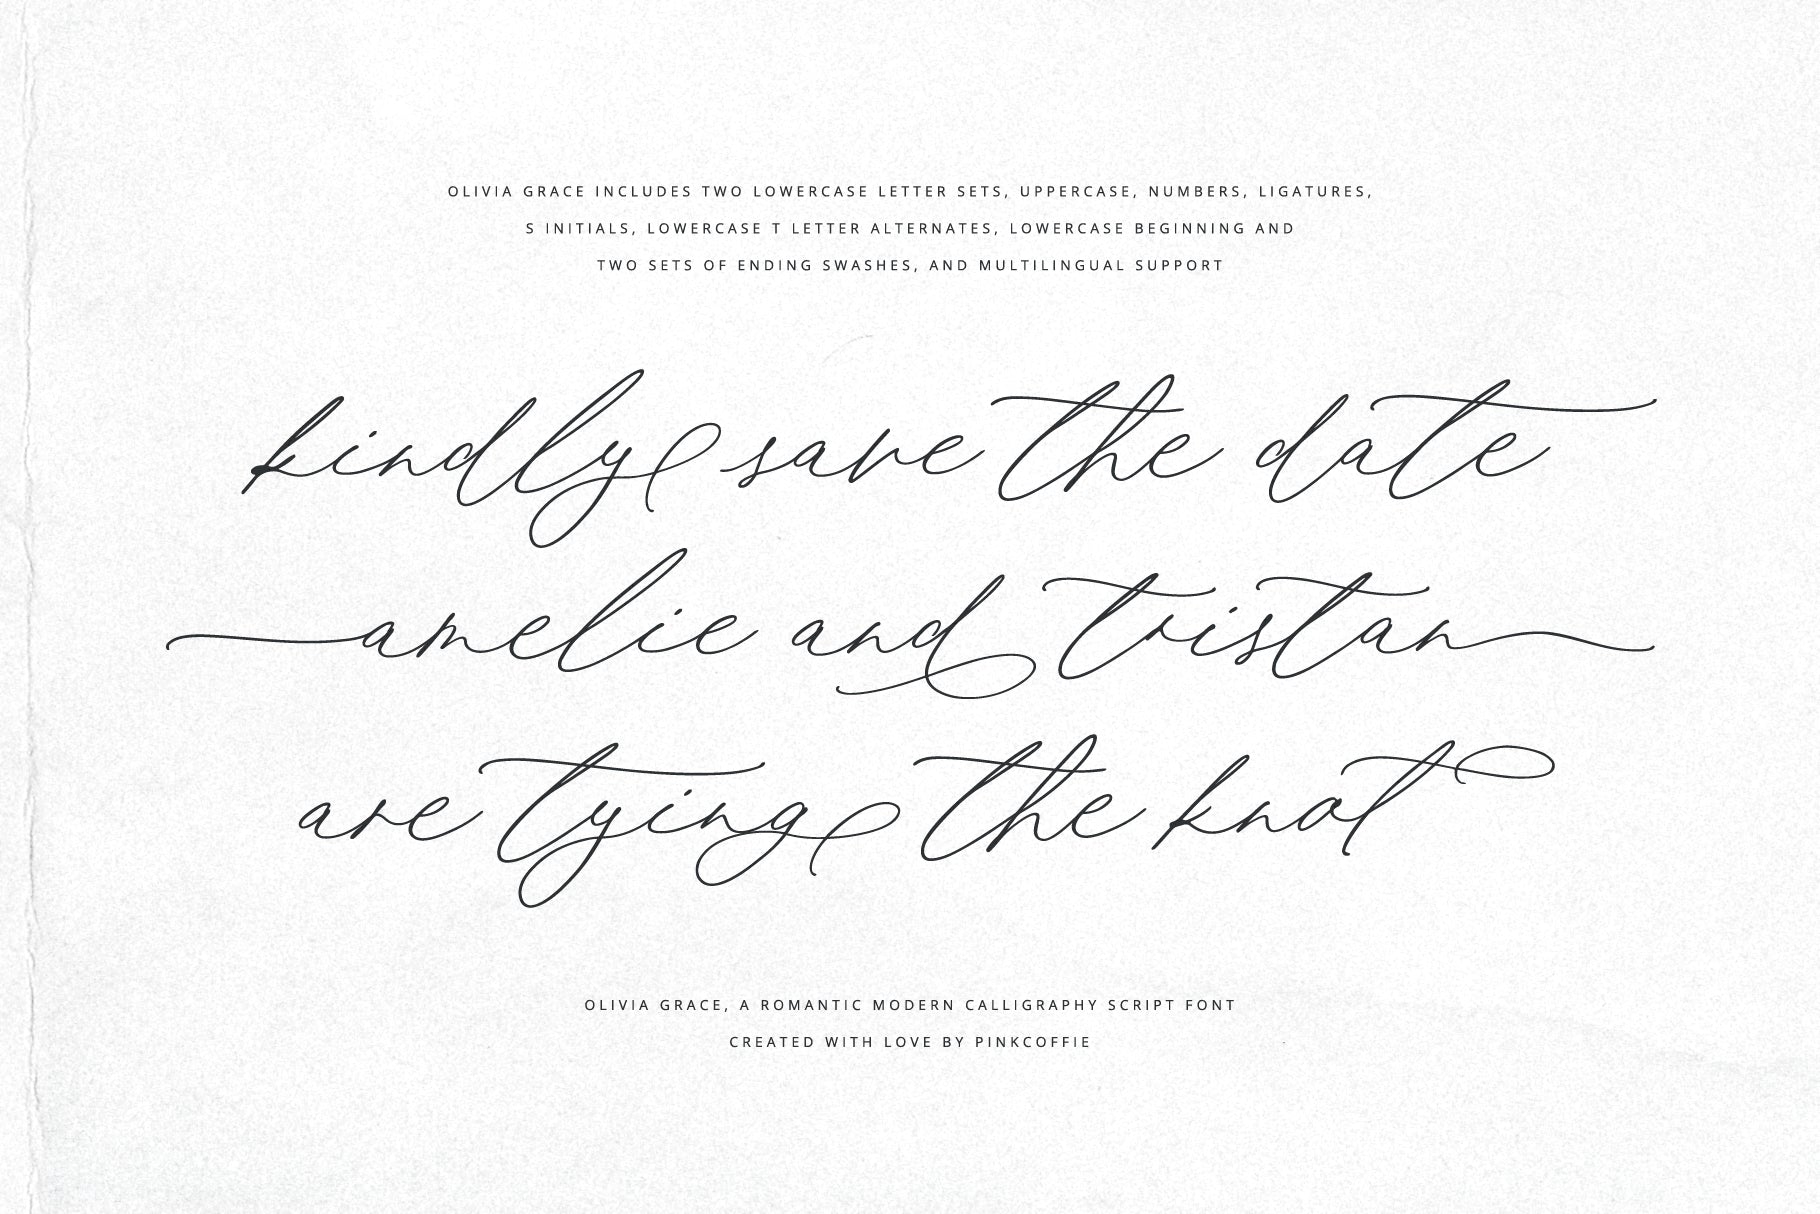 OLIVIA GRACE INCLUDES TWO LOWERCASE LETTER SETS, UPPERCASE, NUMBERS, LIGATURES,
S INITIALS, LOWERCASE T LETTER ALTERNATES, LOWERCASE BEGINNING AND
TWO SETS OF ENDING SWASHES, AND MULTILINGUAL SUPPORT
kindly save the date
amelie and tristan
are tying the knot
OLIVIA GRACE, A ROMANTIC MODERN CALLIGRAPHY SCRIPT FONT
CREATED WITH LOVE BY PINKCOFFIE